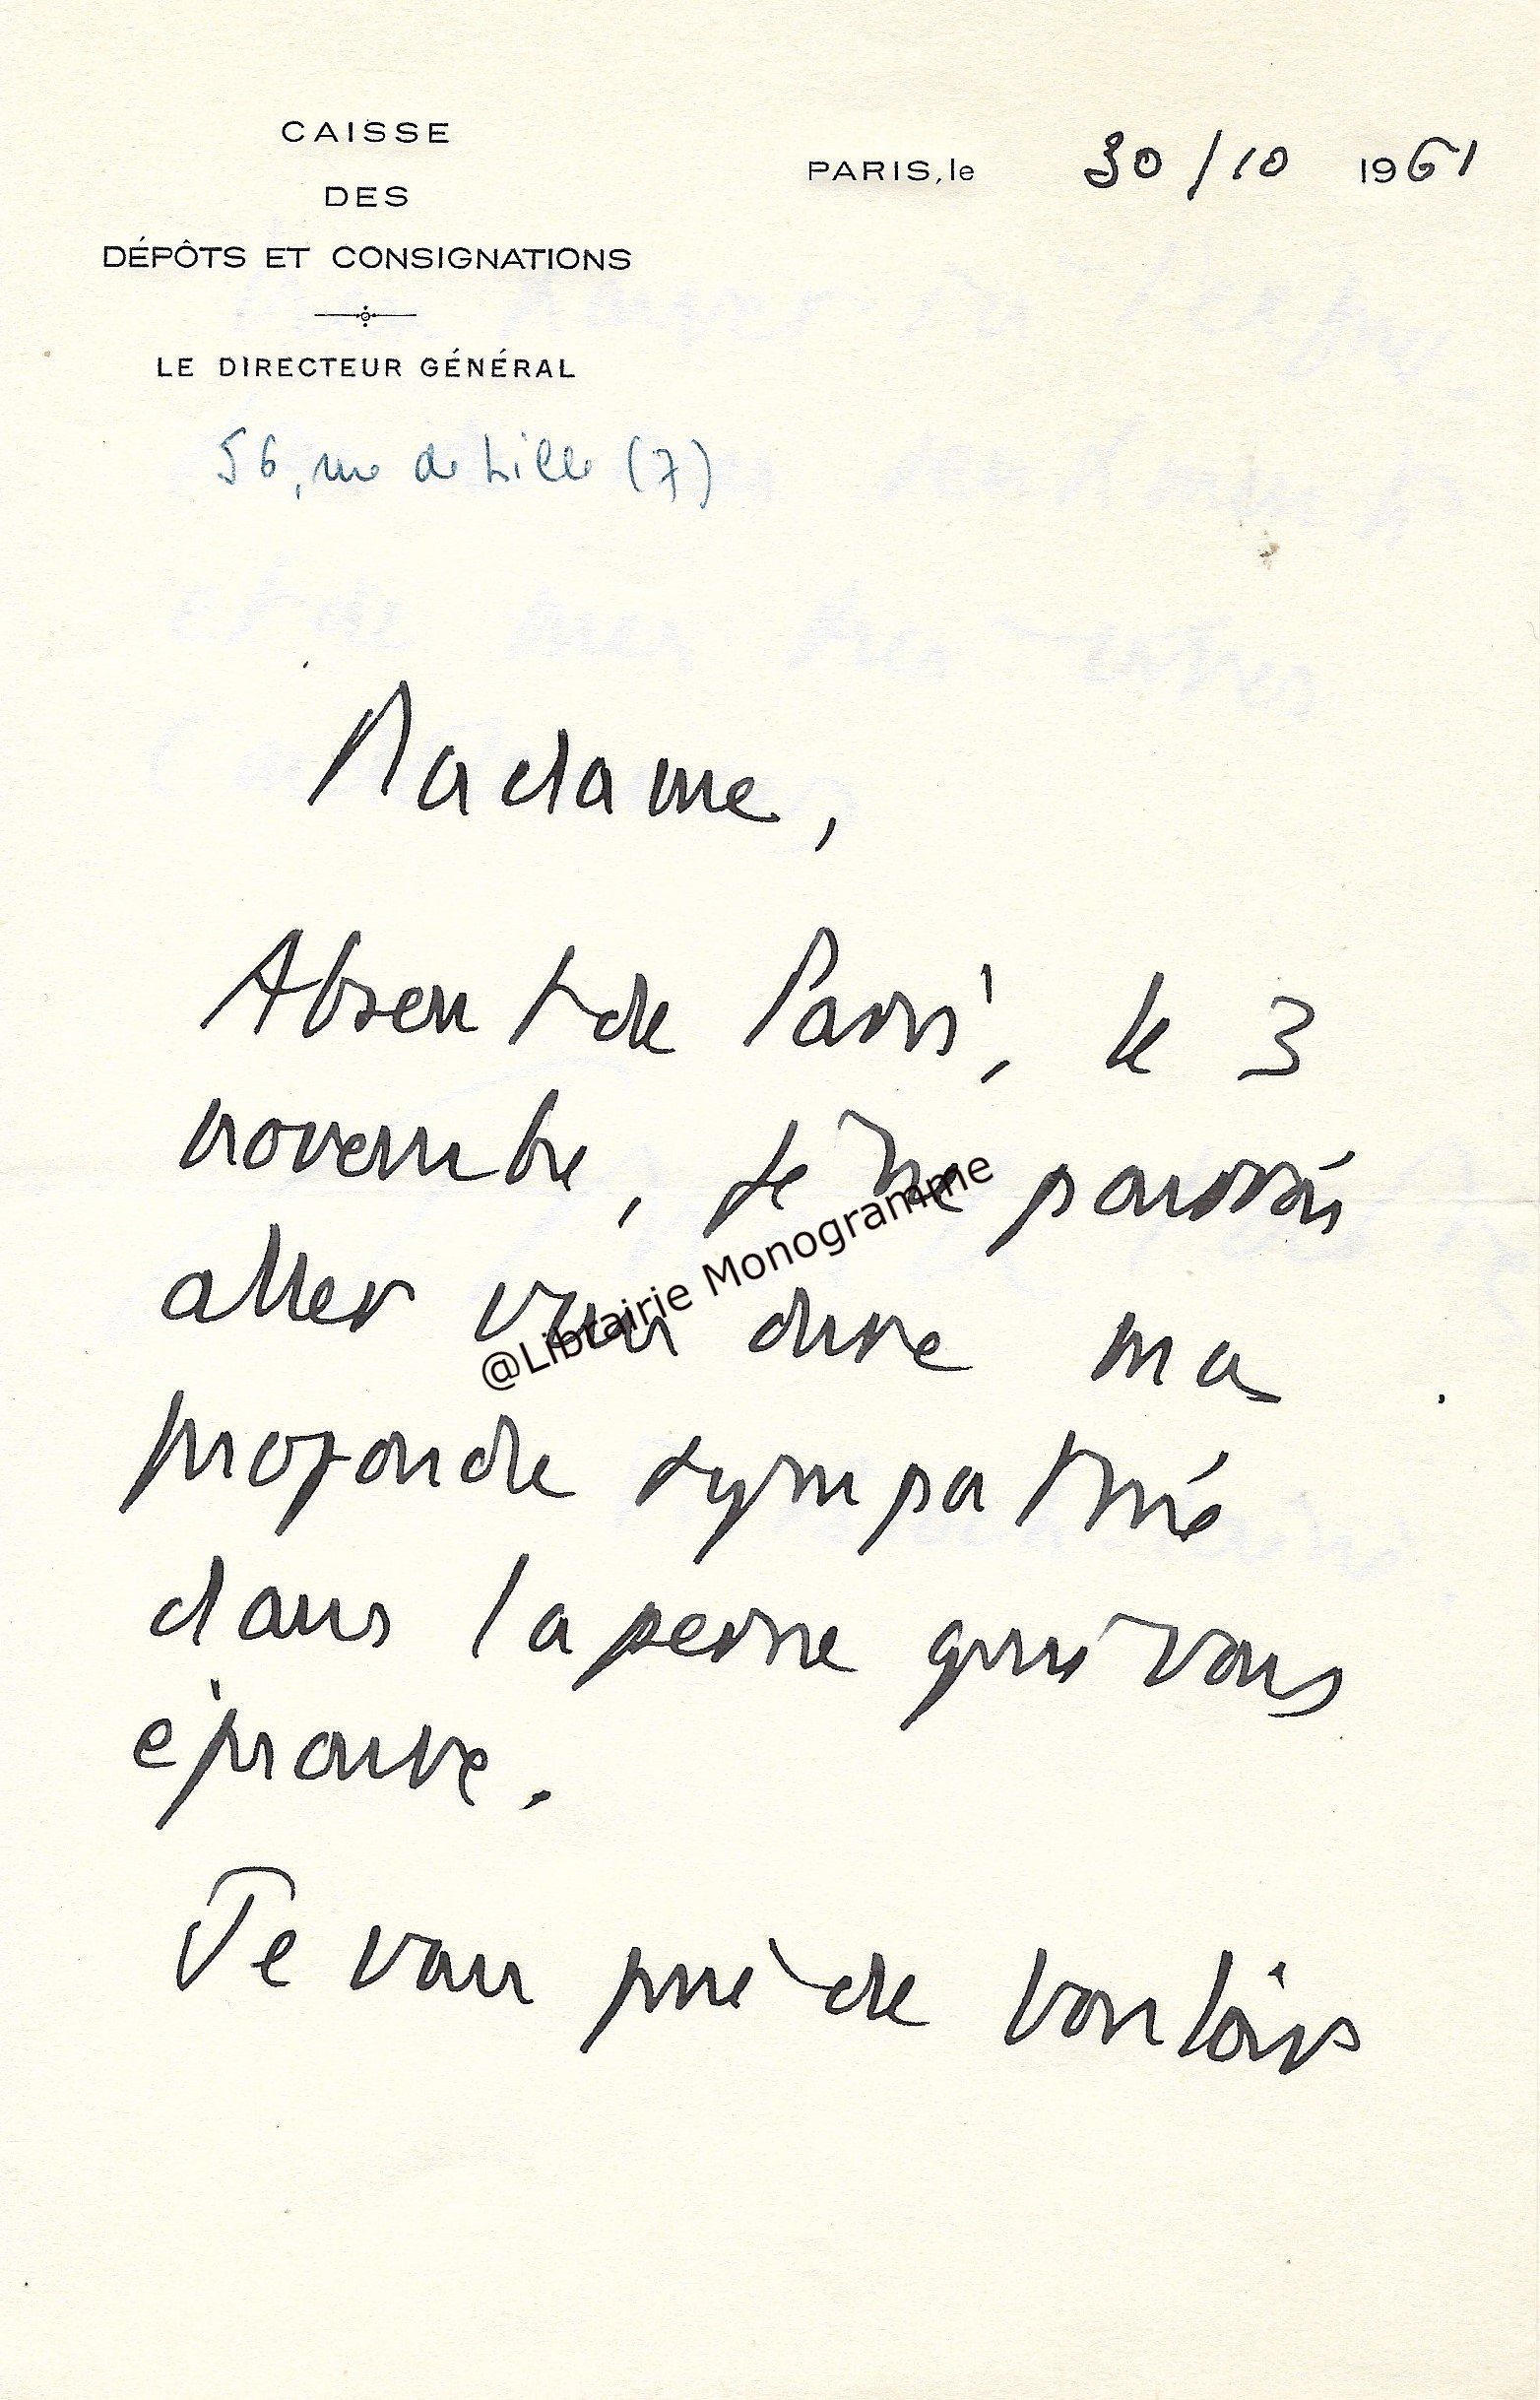 CAISSE
DES
DÉPÔTS ET CONSIGNATIONS
LE DIRECTEUR GÉNÉRAL
PARIS, le 30/10 1961
56, rue de Lille (7)
Madame,
Absent de Paris, le 3
novembre, je ne pourrai
aller vous dire ma
profonde sympathie
dans la peine qui vous
éprouve.
Je vous prie de vouloir
@Librairie Monogramme